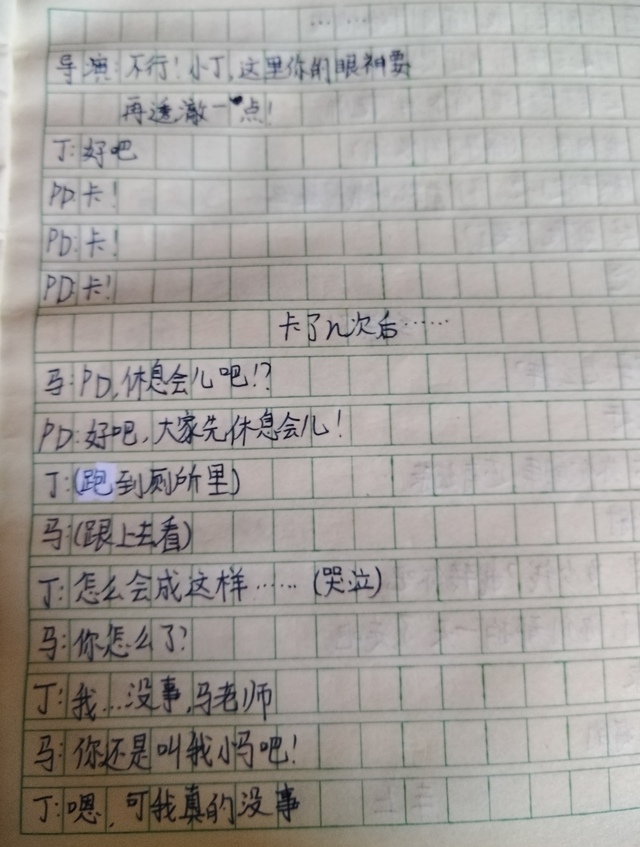 ……
导演:不行!小丁,这里你的眼神要
再透澈一点!
丁:好吧
PD:卡!
PD:卡!
PD:卡!
卡了n次后……
马:PD,休息会儿吧!?
PD:好吧,大家先休息会儿!
丁:(跑到厕所里)
马:(跟上去看)
丁:怎么会成这样……(哭泣)
马:你怎么了?
丁:我...没事,马老师
马:你还是叫我小马吧!
丁:嗯,可我真的没事